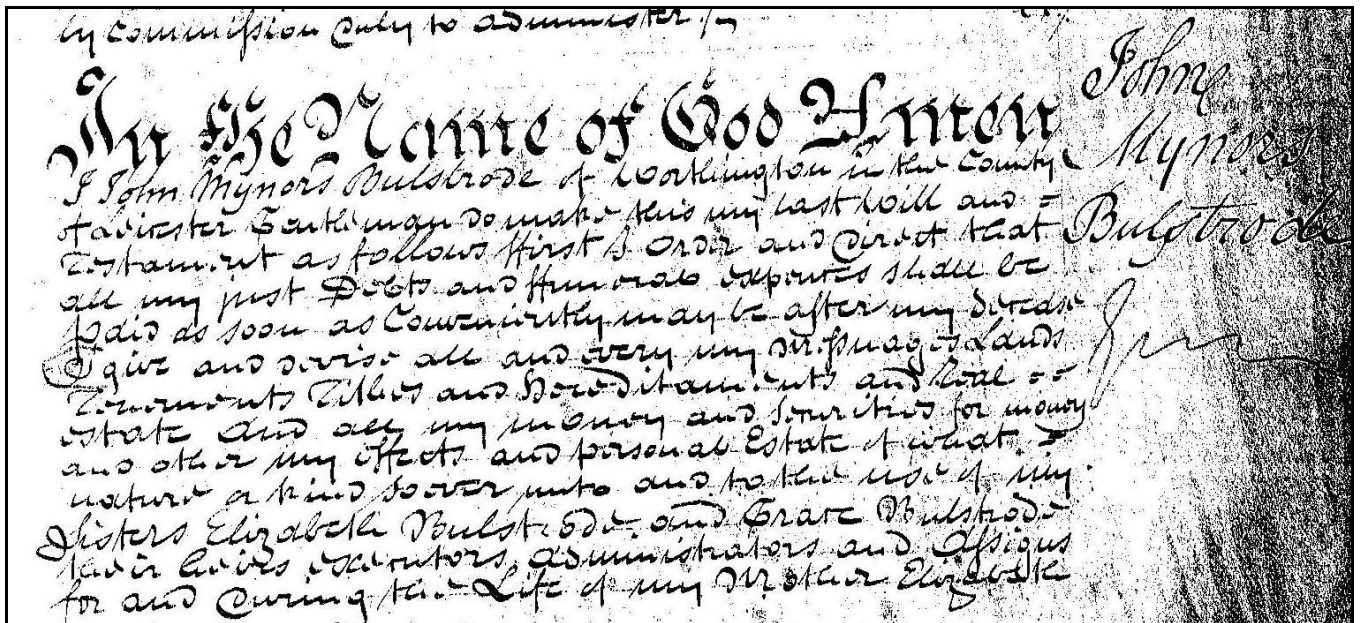 by Commission duly to administer./.
In the Name of God Amen
I John Mynors Bulstrode of Worthington in the County
of Leicester Gentleman do make this my last Will and =
Testament as follows ffirst I Order and Direct that
all my just Debts and ffuneral expences shall be
paid as soon as Conveniently may be after my decease
I give and devise all and every my Messuages Lands
Tenements Tithes and Hereditaments and Real ==
estate and all my money and Securities for money
and other my effects and personal Estate of what =
nature or kind soever unto and to the use of my
Sisters Elizabeth Bulstrode and Grace Bulstrode
their heirs executors administrators and Assigns
for and during the Life of my Mother Elizabeth
John
Mynors
Bulstrode